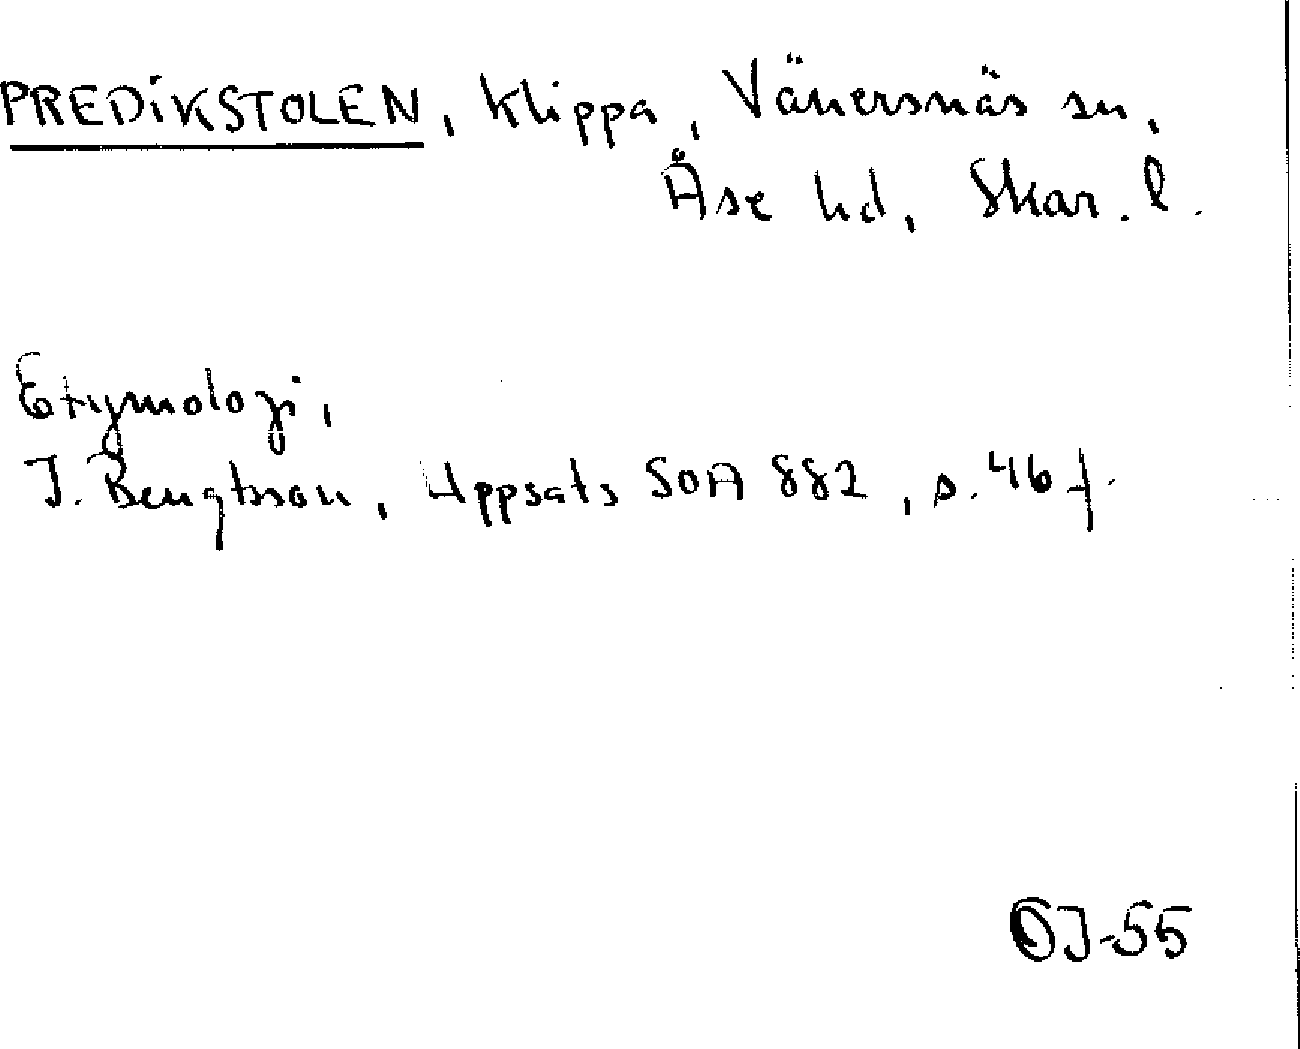 PREDIKSTOLEN, Klippa, Vänersnäs sn,
Åse hd, Skar. l.
Etymologi,
J. Bengtsson, Uppsats SOA 882, s. 46 f.
OJ-55